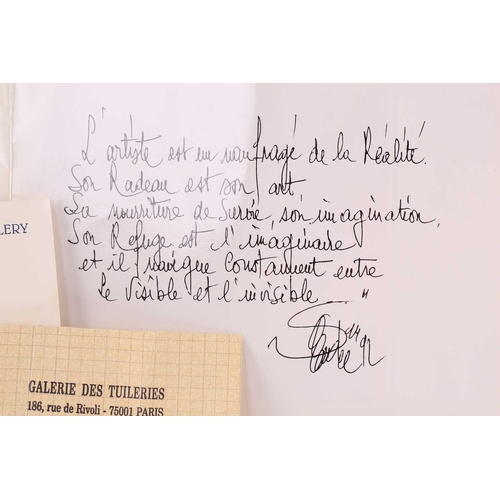 L'artiste est un naufragé de la Réalité.
Son Radeau est son art
Sa nourriture de Survie, son imagination,
Son Refuge est l'imaginaire
et il navigue constamment entre
le visible et l'invisible
"
92
LERY
GALERIE DES TUILERIES
186, rue de Rivoli - 75001 PARIS